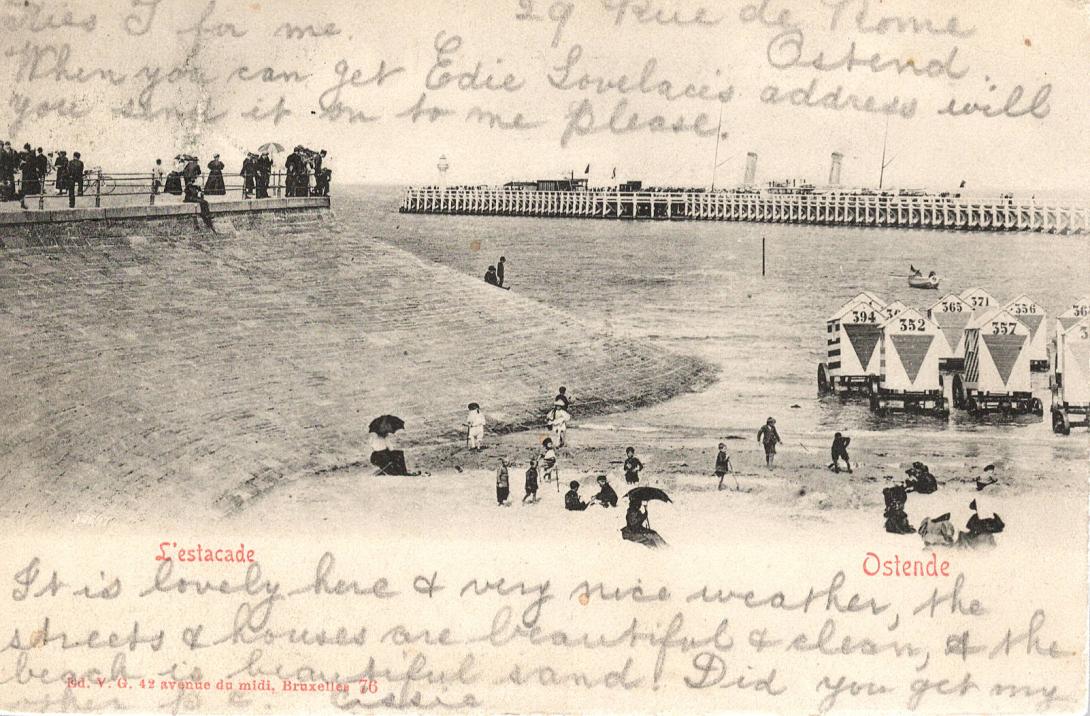 29 Rue de Rome
Ostend.
for me.
When you can get Edie Lovelace's address will
you send it on to me please.
394
352
365
371
356
357
L'estacade
Ostende
It is lovely here & very nice weather, the
streets & houses are beautiful & clean, & the
beach is beautiful sand. Did you get my
other p.c.
Ed. V. G. 42 avenue du midi, Bruxelles 76